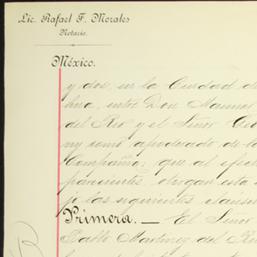 Lic. Rafael F. Morales
Notario.
México.
y dos, en la Ciudad de
entre Don Manuel
del Rio y el Señor
ny como apoderado de la
Compañía; que al efe
parecientes, otorgan esta
las siguientes clausu
Primera. — El Señor
Pablo Martinez del Rio